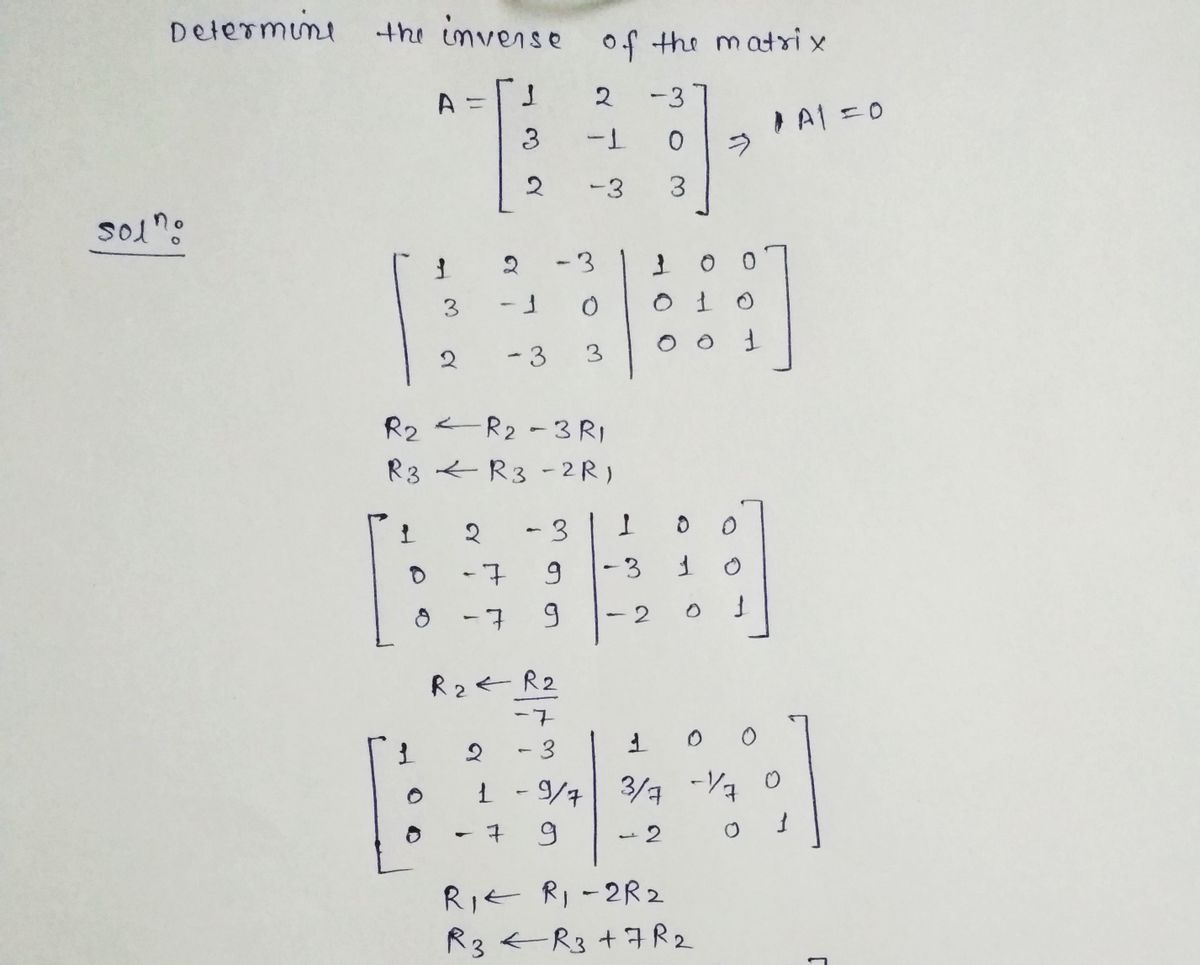 Determine the inverse of the matrix
A = [ 1 2 -3
3 -1 0
2 -3 3 ] ⇒ |A| = 0
Solⁿ:
[ 1 2 -3 | 1 0 0
3 -1 0 | 0 1 0
2 -3 3 | 0 0 1 ]
R2 ← R2 - 3R1
R3 ← R3 - 2R1
[ 1 2 -3 | 1 0 0
0 -7 9 | -3 1 0
0 -7 9 | -2 0 1 ]
R2 ← R2/-7
[ 1 2 -3 | 1 0 0
0 1 -9/7 | 3/7 -1/7 0
0 -7 9 | -2 0 1 ]
R1 ← R1 - 2R2
R3 ← R3 + 7R2